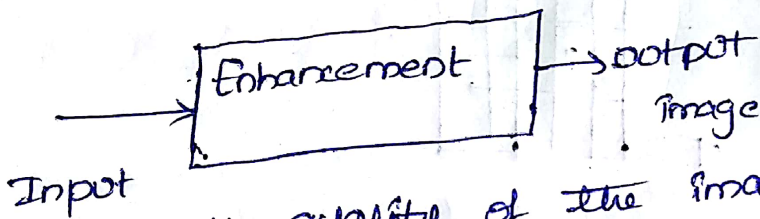 Enhancement
output
image
Input
quality of the ima